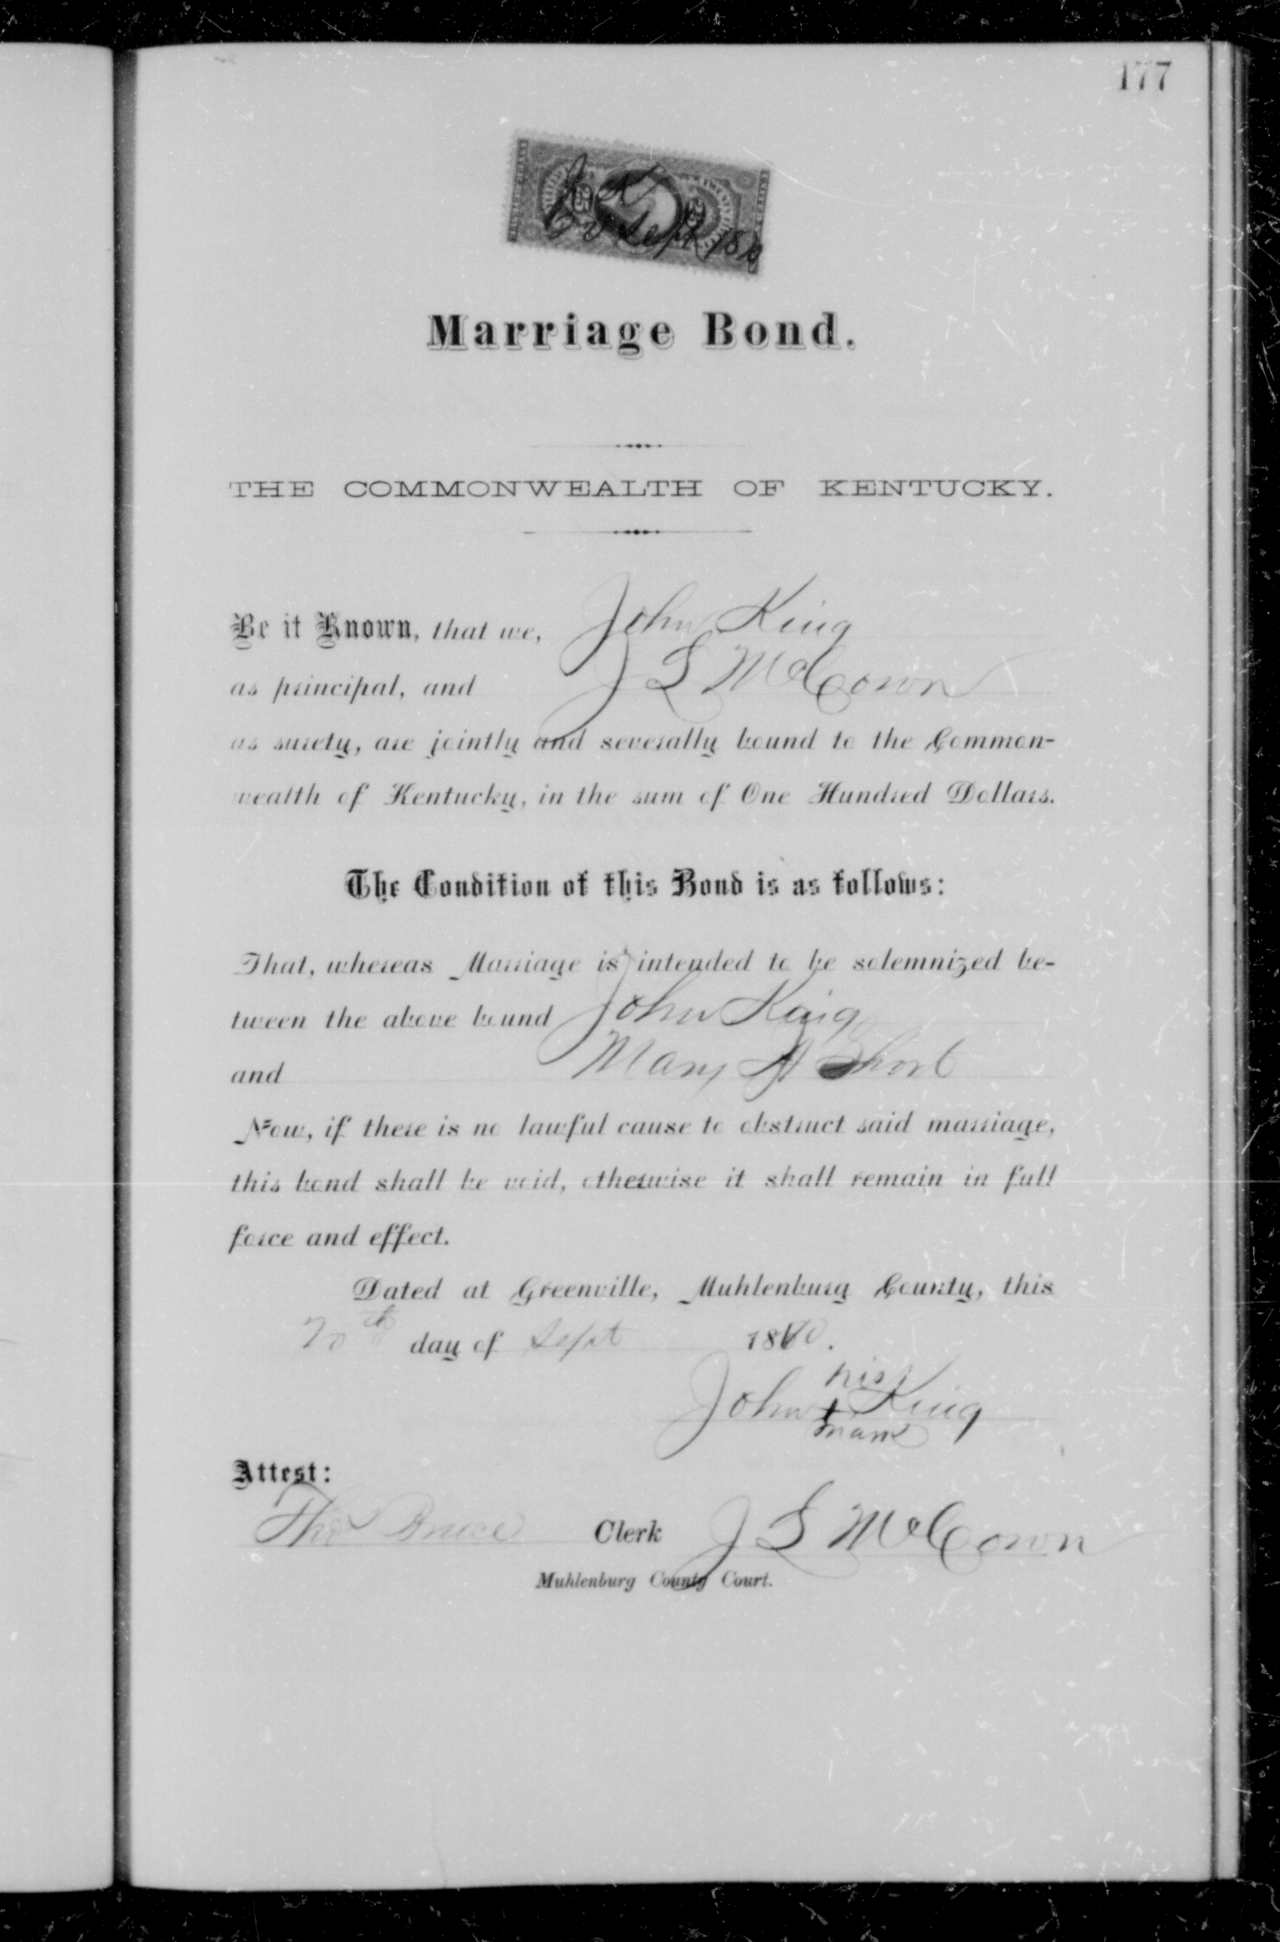 177
20 Sept 18
Marriage Bond.
THE COMMONWEALTH OF KENTUCKY.
Be it Known, that we, John King
as principal, and J L McCown
as surety, are jointly and severally bound to the Common-
wealth of Kentucky, in the sum of One Hundred Dollars.
The Condition of this Bond is as follows:
That, whereas Marriage is intended to be solemnized be-
tween the above bound John King
and Mary A Short
Now, if there is no lawful cause to obstruct said marriage,
this bond shall be void, otherwise it shall remain in full
force and effect.
Dated at Greenville, Muhlenburg County, this
20th day of Sept 18
his
John + King
mark
Attest:
Tho Bruce Clerk J L McCown
Muhlenburg County Court.